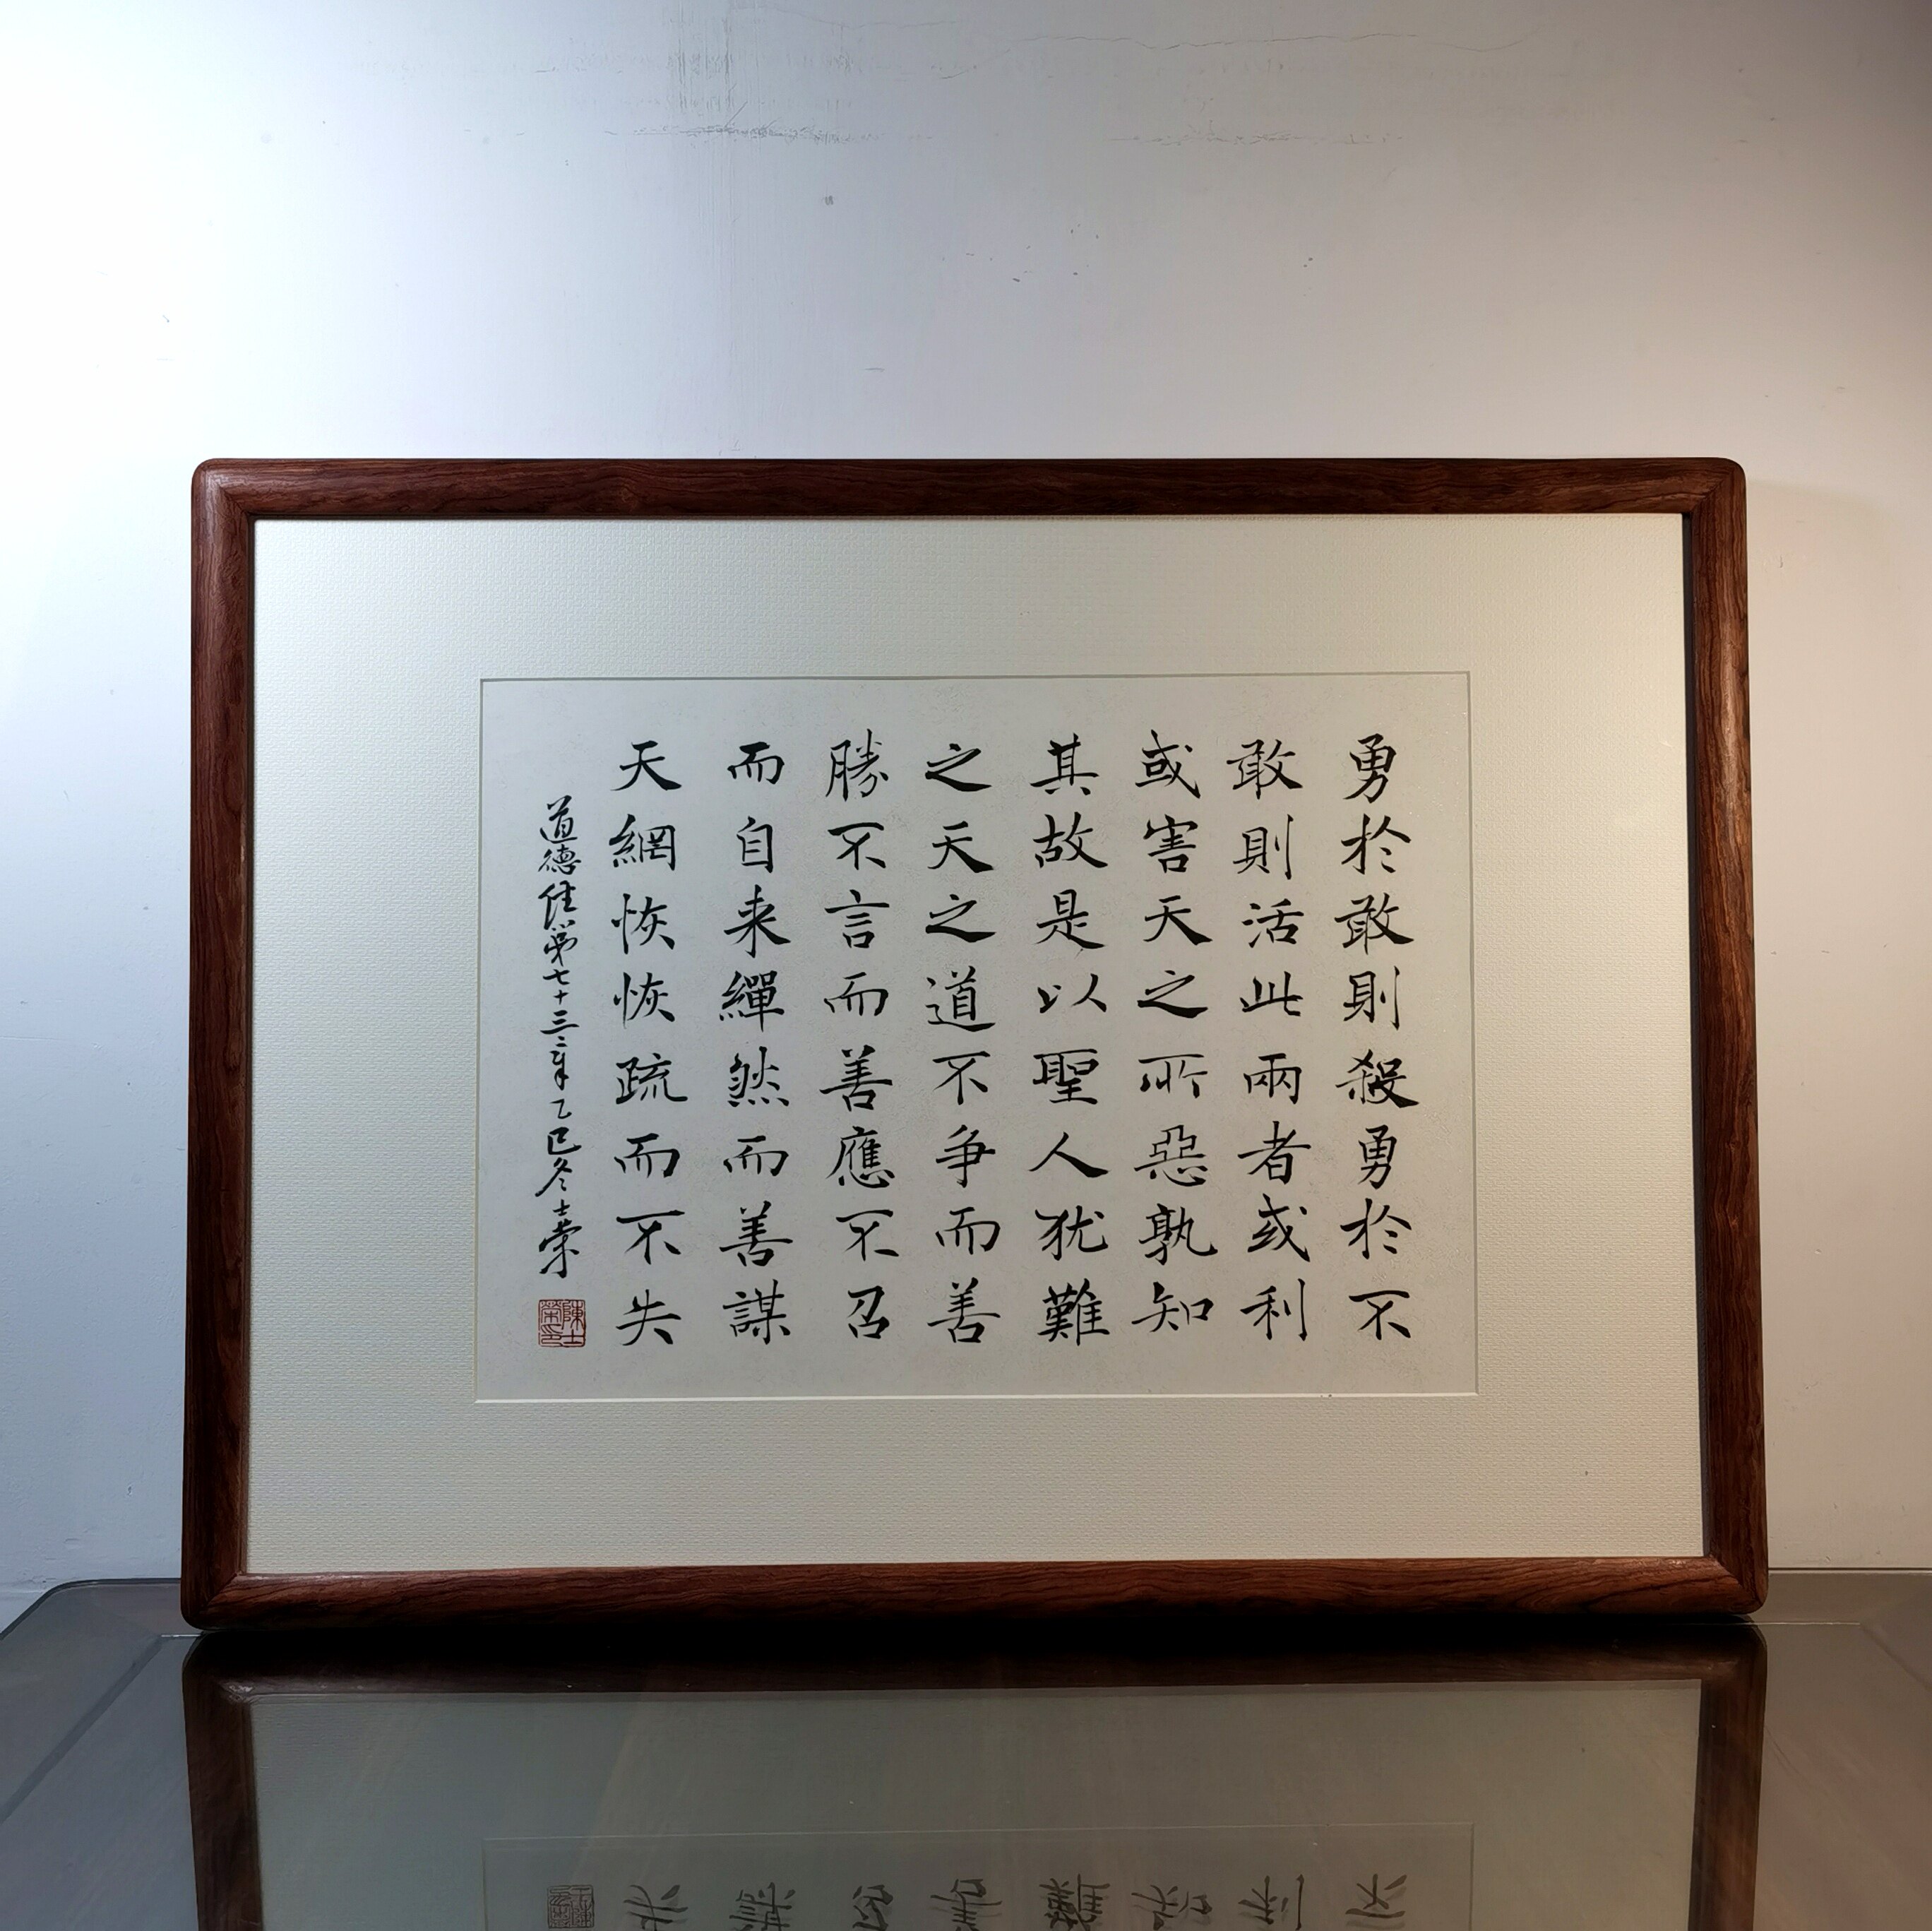 勇於敢則殺勇於不
敢則活此兩者或利
或害天之所惡孰知
其故是以聖人猶難
之天之道不爭而善
勝不言而善應不召
而自来繟然而善謀
天網恢恢疏而不失
道德經第七十三章乙巳冬士榮
陳士榮印